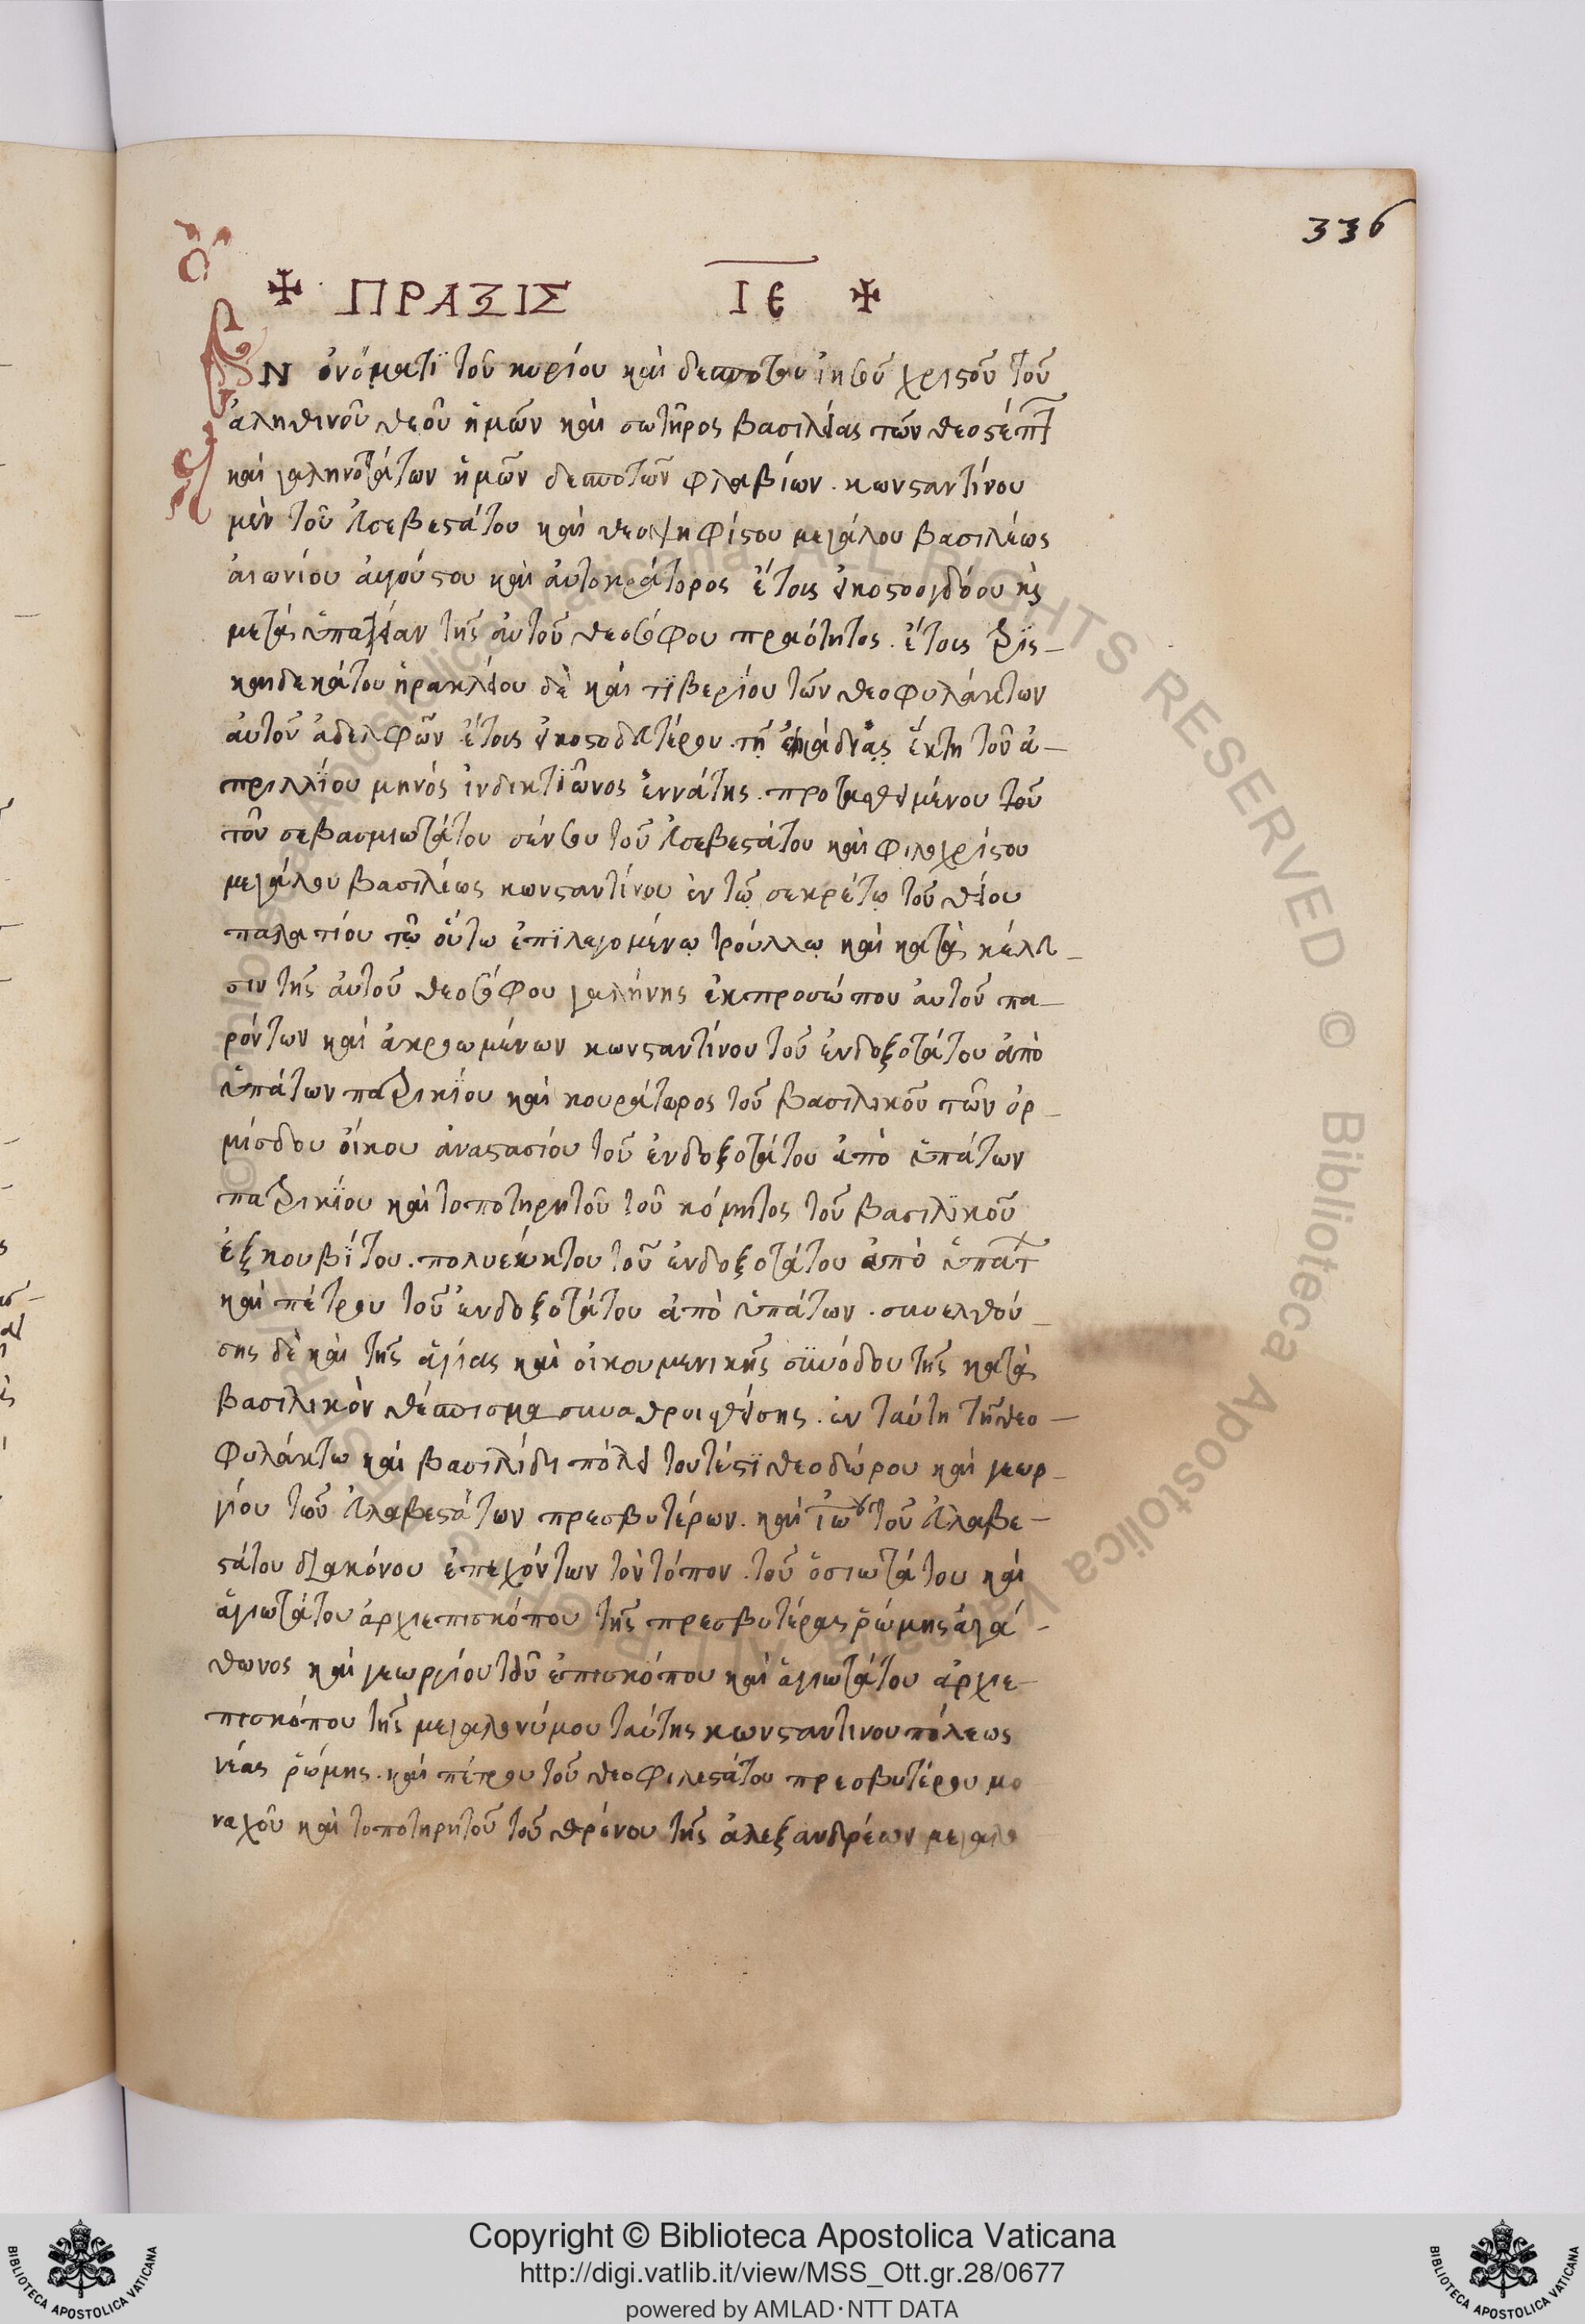 336
✠ ΠΡΑΞΙΣ ΙΕ ✠
Ἐν ὀνόματϊ τοῦ κυρίου καὶ δεσπότου ἰησοῦ χριστοῦ τοῦ
ἀληθινοῦ θεοῦ ἡμῶν καὶ σωτῆρος βασιλείας τῶν θεοστέπτ
καὶ γαληνοτάτων ἡμῶν δεσποτῶν φλαβίων. κωνσταντίνου
μὲν τοῦ εὐσεβεστάτου καὶ θεοψηφίστου μεγάλου βασιλέως
αἰωνίου αὐγούστου καὶ αὐτοκράτορος ἔτους εἰκοστοογδόου καὶ
μετὰ ὑπατείαν τῆς αὐτοῦ θεοσόφου πραότητος. ἔτους τρϊς-
καιδεκάτου ἡρακλείου δὲ καὶ τϊβερΐου τῶν θεοφυλάκτων
αὐτοῦ ἀδελφῶν ἔτους εἰκοστοδευτέρου. τῇ ἕκτη τοῦ ἀ-
πριλλΐου μηνός ἰνδικτιῶνος ἐννάτης. προκαθημένου τοῦ
τοῦ σεβασμιωτάτου σένσου τοῦ εὐσεβεστάτου καὶ φιλοχρίστου
μεγάλου βασιλέως κωνσταντίνου ἐν τῷ σεκρέτῳ τοῦ θείου
παλατίου τῷ οὕτω ἐπϊλεγομένῳ τρούλλῳ καὶ κατὰ κέλευ-
σιν τῆς αὐτοῦ θεοσόφου γαλήνης ἐκπροσώπου αὐτοῦ πα-
ρόντων καὶ ἀκροωμένων κωνσταντίνου τοῦ ἐνδοξοτάτου ἀπὸ
ὑπάτων πατρικΐου καὶ κουράτωρος τοῦ βασιλικοῦ τῶν ὁρ-
μίσδου οἴκου ἀναστασίου τοῦ ἐνδοξοτάτου ἀπὸ ὑπάτων
πατρικΐου καὶ τοποτηρητοῦ τοῦ κόμητος τοῦ βασιλϊκοῦ
ἐξκουβΐτου. πολυεύκτου τοῦ ἐνδοξοτάτου ἀπὸ ὑπάτ
καὶ πέτρου τοῦ ἐνδοξοτάτου ἀπὸ ὑπάτων. συνελθού-
σης δὲ καὶ τῆς ἁγίας καὶ οἰκουμενικῆς συνόδου τῆς κατὰ
βασιλικὸν θέσπισμα συναθροισθείσης. ἐν ταύτη τῆ θεο-
φυλάκτω καὶ βασιλίδι πόλει τουτέστϊ θεοδώρου καὶ γεωρ-
γίου τῶν εὐλαβεστάτων πρεσβυτέρων. καὶ ἰωου τοῦ εὐλαβε-
στάτου διακόνου ἐπεχόντων τὸν τόπον. τοῦ ὁσιωτάτου καὶ
ἁγιωτάτου ἀρχιεπισκόπου τῆς πρεσβυτέρας ῥώμης ἀγά-
θωνος καὶ γεωργίου τοῦ ἐπισκόπου καὶ ἁγιωτάτου ἀρχιε-
πισκόπου τῆς μεγαλονύμου ταύτης κωνσταντινουπόλεως
νέας ῥώμης. καὶ πέτρου τοῦ θεοφιλεστάτου πρεσβυτέρου μο
ναχοῦ καὶ τοποτηρητοῦ τοῦ θρόνου τῆς ἀλεξανδρέων μεγαλο
© Biblioteca Apostolica Vaticana ALL RIGHTS RESERVED
Copyright © Biblioteca Apostolica Vaticana
http://digi.vatlib.it/view/MSS_Ott.gr.28/0677
powered by AMLAD·NTT DATA
BIBLIOTECA APOSTOLICA VATICANA
BIBLIOTECA APOSTOLICA VATICANA